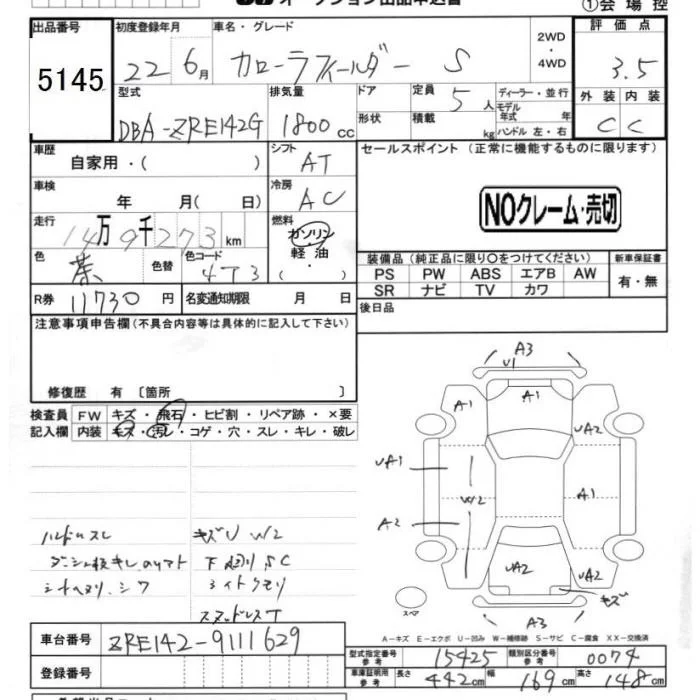 オークション出品申込書
①会場控
出品番号 5145
初度登録年月 22 6月
車名・グレード カローラフィールダー S
2WD ・ 4WD
評価点 3.5
型式 DBA-ZRE142G
排気量 1800 cc
ドア 形状
定員 5人
積載 kg
ディーラー・並行
モデル年式 年
ハンドル 左・右
外装 内装
C C
車歴 自家用・( )
シフト AT
セールスポイント(正常に機能するものに限ります)
車検 年 月( 日)
冷房 AC
NOクレーム・売切
走行 14万9千273km
燃料 ガソリン・軽油・
色 茶 色替
色コード 4T3
装備品(純正品に限り〇をつけてください)
新車保証書
PS PW ABS エアB AW
有・無
SR ナビ TV カワ
R券 11730円
名変通知期限 月 日
後日品
注意事項申告欄(不具合内容等は具体的に記入して下さい)
修復歴 有〔箇所 〕
検査員記入欄
FW キズ・飛石・ヒビ割・リペア跡・×要
内装 キズ・汚レ・コゲ・穴・スレ・キレ・破レ
ハンドルスレ
シートヘタリ、シワ
キズU W2
下廻りSC
ライトクモリ
スタッドレスT
A3
U1
A1
A1
UA2
UA1
W2
A1
A2
UA2
UA2
キズ
A3
スペア
A-キズ E-エクボ U-凹み W-補修跡 S-サビ C-腐食 XX-交換済
車台番号 ZRE142-9111629
型式指定番号 参考 15425
類別区分番号 参考 0074
登録番号
車庫証明用 参考 長さ 442cm 幅 169cm 高さ 148cm